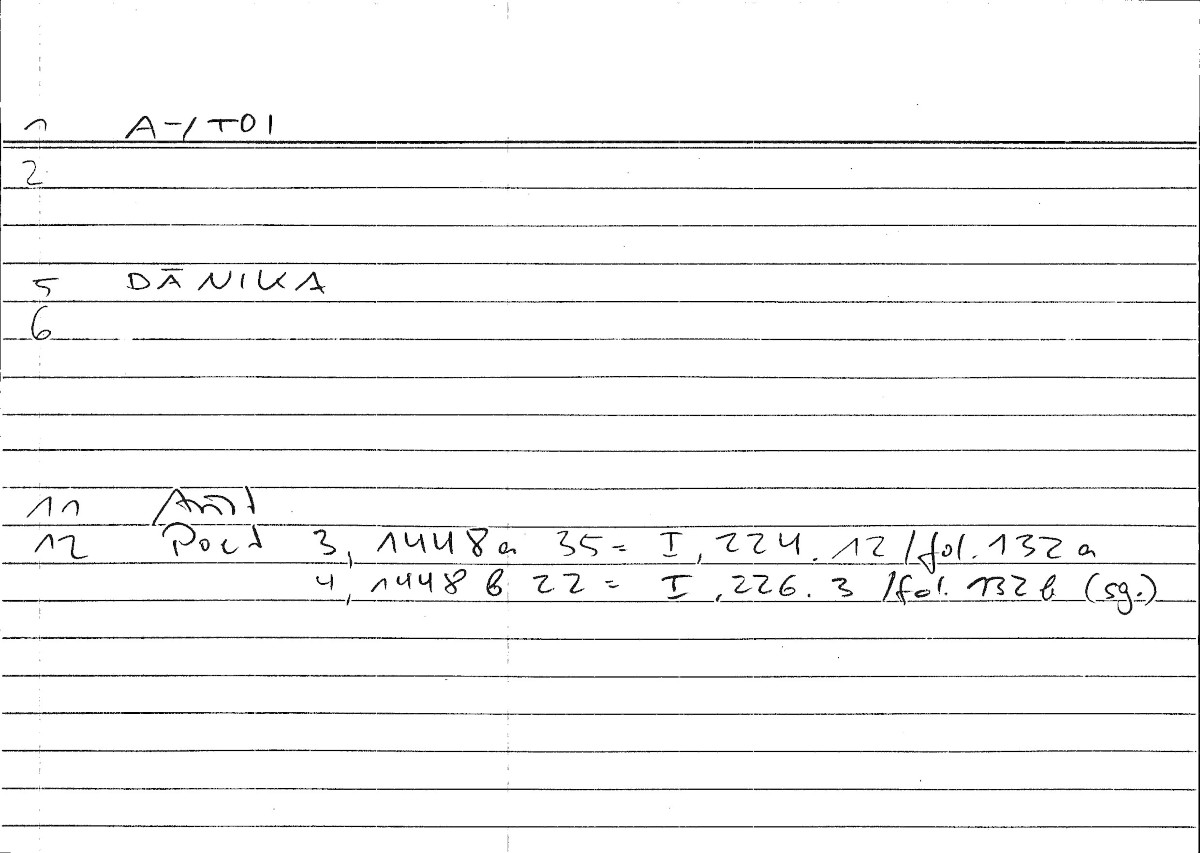 1 A-/TOI
2
5 DĀNIKA
6
11 Arist
12 Poet 3, 1448a 35 = I, 224.12/fol. 132a
4, 1448b 22 = I, 226.3/fol. 132b (sg.)